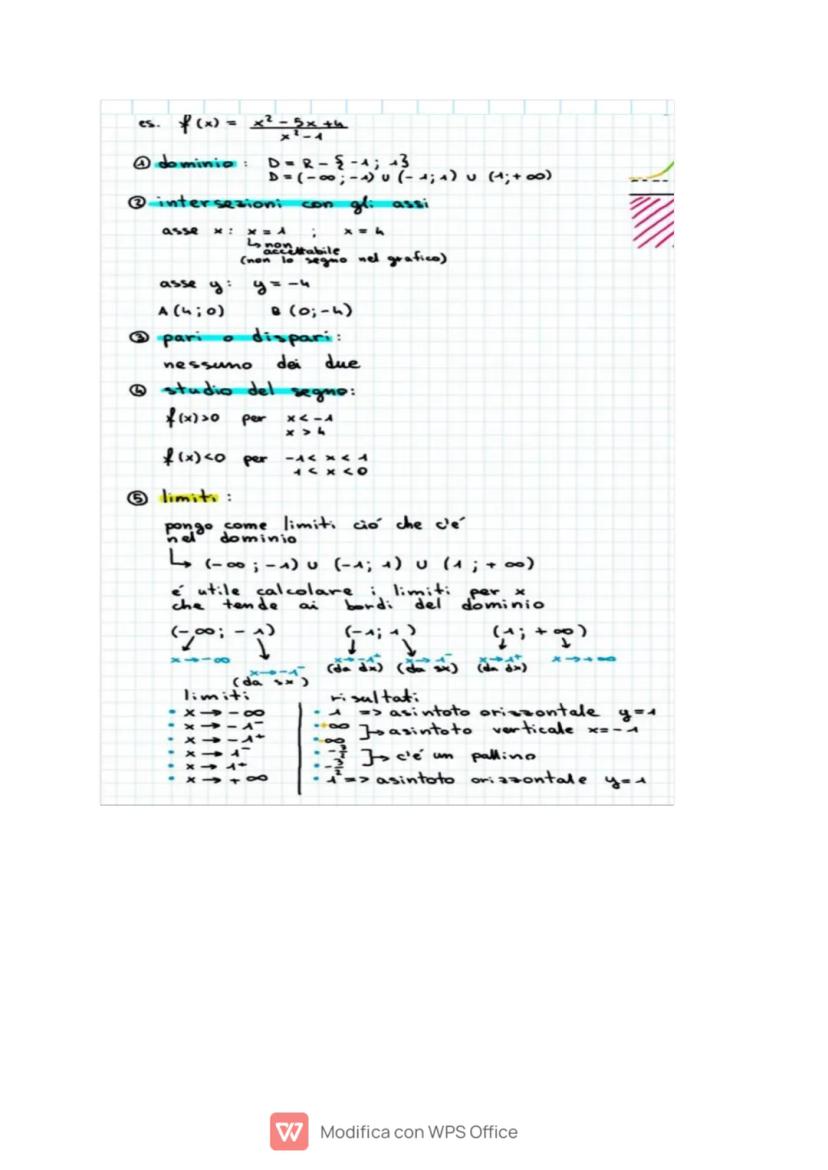 es. f(x) = x² - 5x + 4 / x² - 1
① dominio: D = R - {-1; 1}
D = (-∞; -1) ∪ (-1; 1) ∪ (1; +∞)
② intersezioni con gli assi
asse x: x = 1 ; x = 4
↳ non accettabile
(non lo segno nel grafico)
asse y: y = -4
A (4; 0) B (0; -4)
③ pari o dispari:
nessuno dei due
④ studio del segno:
f(x)>0 per x < -1
x > 4
f(x)<0 per -1 < x < 1
1 < x < 0
⑤ limiti:
pongo come limiti ció che c'é
nel dominio
↳ (-∞; -1) ∪ (-1; 1) ∪ (1; +∞)
é utile calcolare i limiti per x
che tende ai bordi del dominio
(-∞; -1) (-1; 1) (1; +∞)
x→-∞ x→-1⁻ x→-1⁺ x→1⁻ x→1⁺ x→+∞
(da sx) (da dx) (da sx) (da dx)
limiti risultati
• x → -∞ • 1 => asintoto orizzontale y=1
• x → -1⁻ • +∞ ]→ asintoto verticale x=-1
• x → -1⁺ • -∞
• x → 1⁻ • -3/2 ]→ c'é un pallino
• x → 1⁺ • -3/2
• x → +∞ • 1 => asintoto orizzontale y=1
Modifica con WPS Office